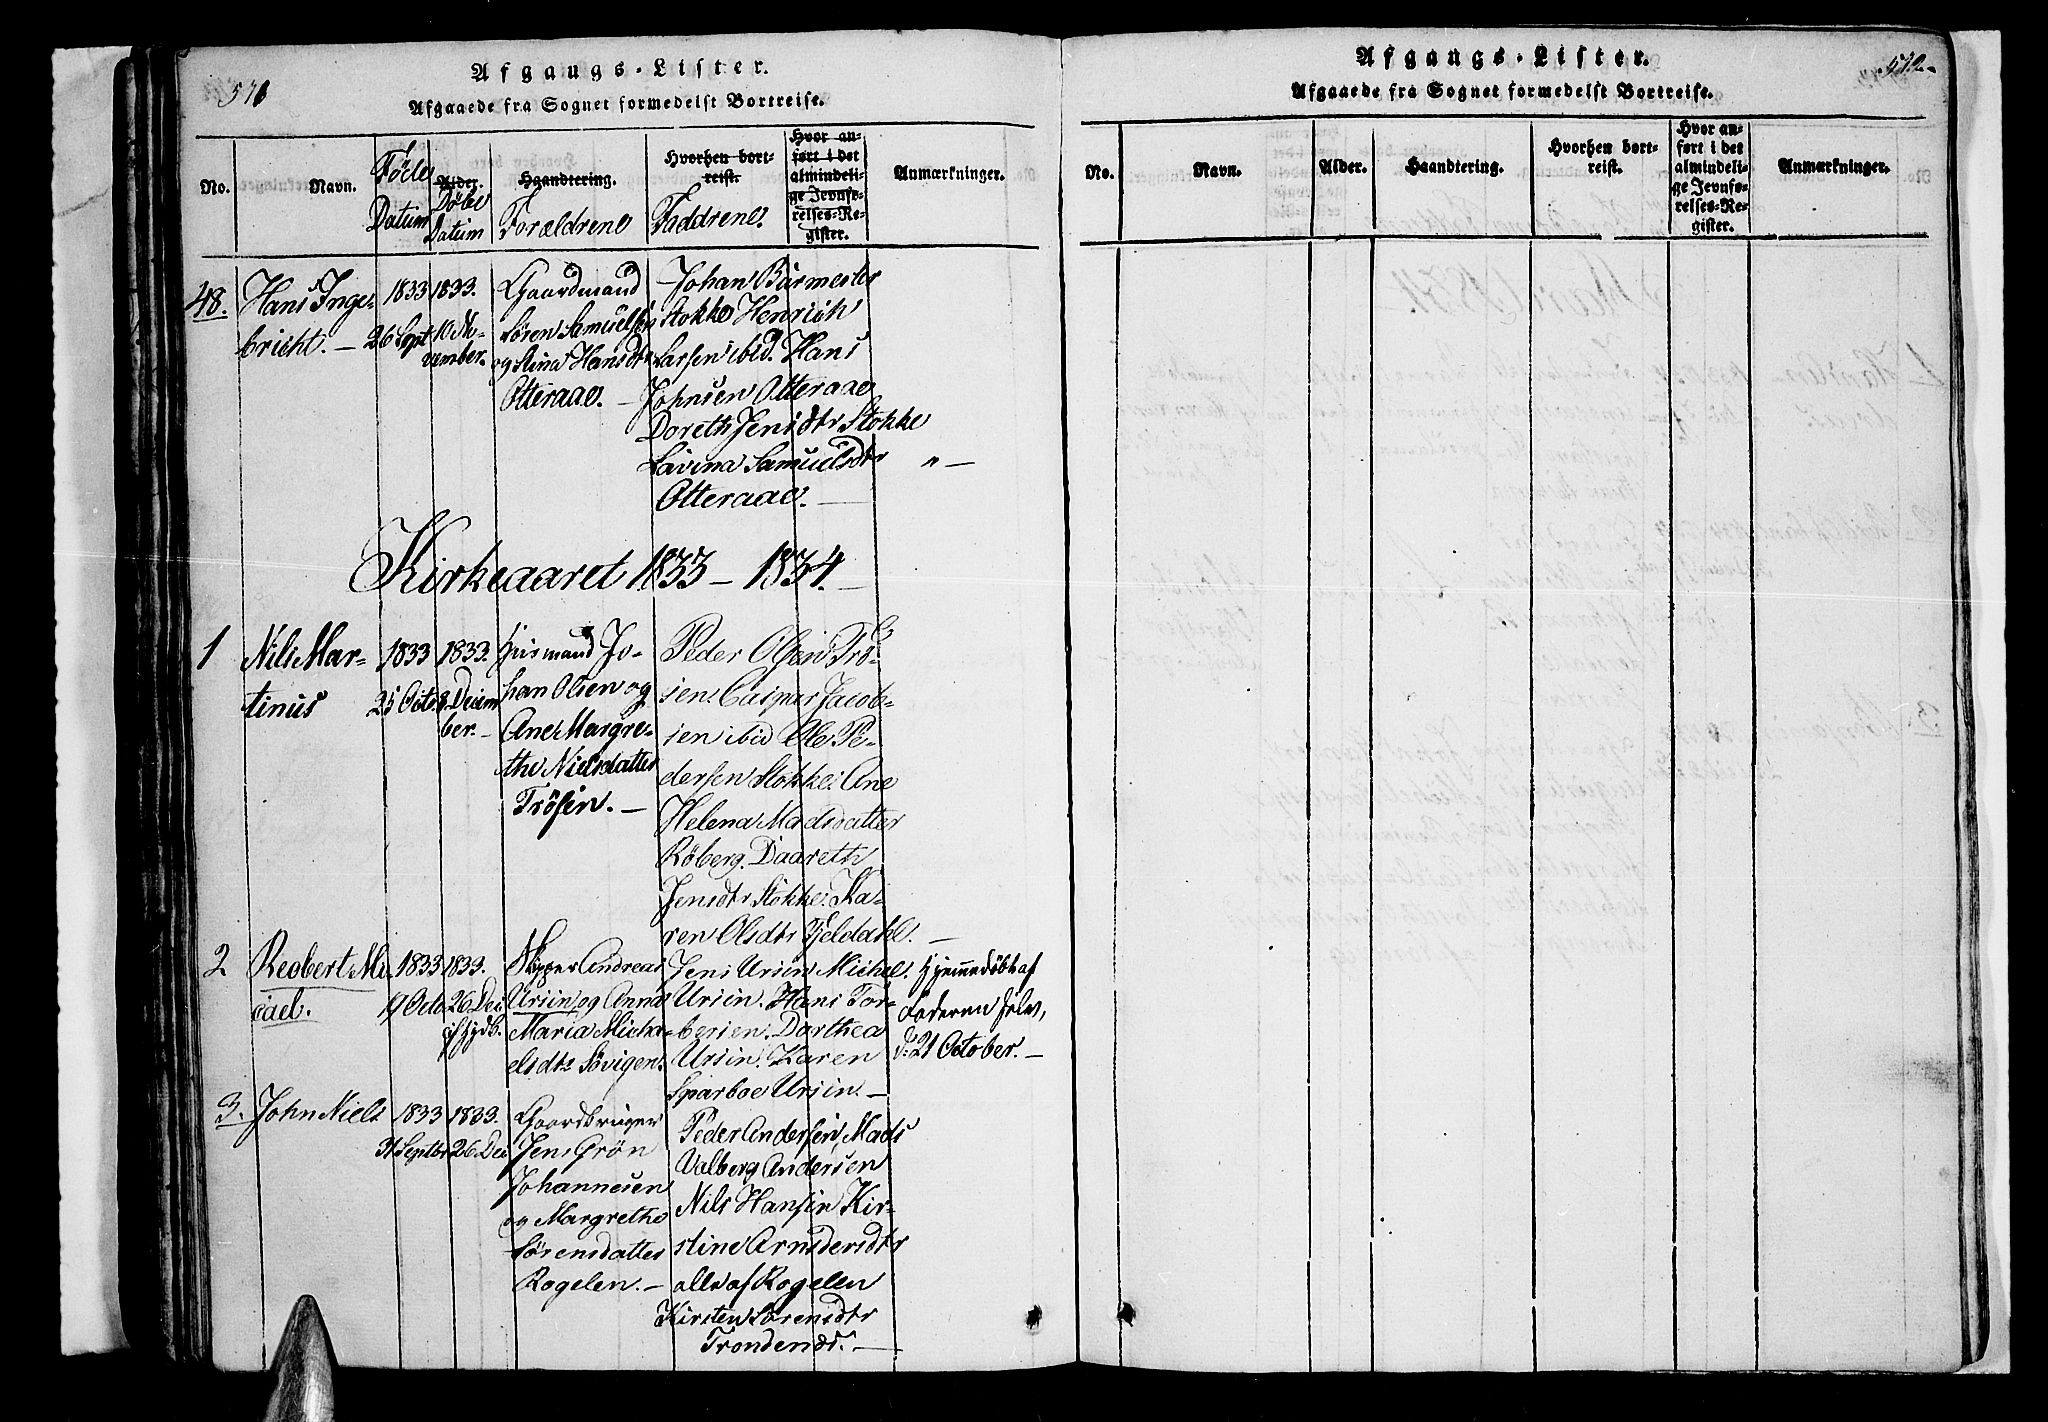 571
Afgangs-Lister.
Afgaaede fra Sognet formedelst Bortreise.
No.
Navn.
Føde
Datum
Alder.
Døbe
Datum
Haandtering.
Forældrene
Hvorhen bort-
reist.
Faddrene.
Hvor an-
ført i det
almindeli-
ge Jevnfø-
relses-Re-
gister.
Anmærkninger.
48.
Hans Inge-
bricht. —
1833
26 Sept
1833.
10 No-
vember.
Gaardmand
Sören Samuelsen
og Stina Hansdtr
Otteraae. —
Johan Bärmester
Stokke Henrich
Larsen ibid. Hans
Johnsen Otteraae
Doreth Jensdtr Stokke
Lavina Samuelsdtr
Otteraae. —
" —
Kirkeaaret 1833 — 1834. —
1
Nils Mar-
tinus
1833
25 Octo
1833.
8. Decem
ber. —
Huusmand Jo-
han Olsen og
Ane Margre-
the Nielsdatter
Trösen. —
Peder Olsen Trö-
sen. Caspar Jacob-
sen ibid Ole Pe-
dersen Stokke. Ane
Helena Madsdatter
Röberg. Daareth
Jensdtr Stokke. Ka-
ren Olsdtr Fjeldahl. —
2
Reobert Mi-
cael.
1833
19 Octo
1833.
26 Dec
Skipper Andreas
Ursin og Anna
Maria Micha-
elsdtr Sövigen.
Jens Ursin Michel
Ursin. Hans Tor-
bersen. Dorthea
Ursin. Karen
Sparboe Ursin. —
Hjemmedöbt af
Faderen selv,
d: 21 October. —
3.
John Niels
1833
31 Septbr
1833.
26 Dec
Gaardbruger
Jens Grön
Johannesen
og Margrethe
Sörensdatter
Rogelen. —
Peder Andersen, Mads
Valberg Andersen
Nils Hansen Kir-
stine Arnsdersdtr
alle af Rogelen
Kirsten Sörensdtr
Trondenæs. —
572.
Afgangs-Lister.
Afgaaede fra Sognet formedelst Bortreise.
No.
Navn.
Alder.
Haandtering.
Hvorhen bort-
reist.
Hvor an-
ført i det
almindeli-
ge Jevnfø-
relses-Re-
gister.
Anmærkninger.